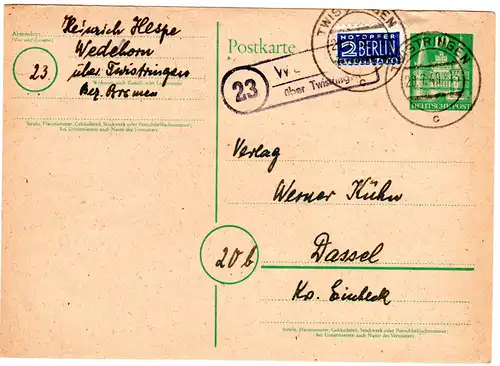 Absender:
Heinrich Hespe
Wedehorn
23.
über Twistringen
Bez. Bremen
Straße, Hausnummer, Gebäudeteil, Stockwerk oder Postschließfachnummer,
bei Untermietern auch Name des Vermieters
Postkarte
NOTOPFER
2 BERLIN
STEUERMARKE
TWISTRINGEN
c
TWISTRINGEN
c
DEUTSCHE POST
23
über Twistringen
Verlag
Werner Kühn
20b
Dassel
Kr. Einbeck
Straße, Hausnummer, Gebäudeteil, Stockwerk oder Postschließfachnummer,
bei Untermietern auch Name des Vermieters